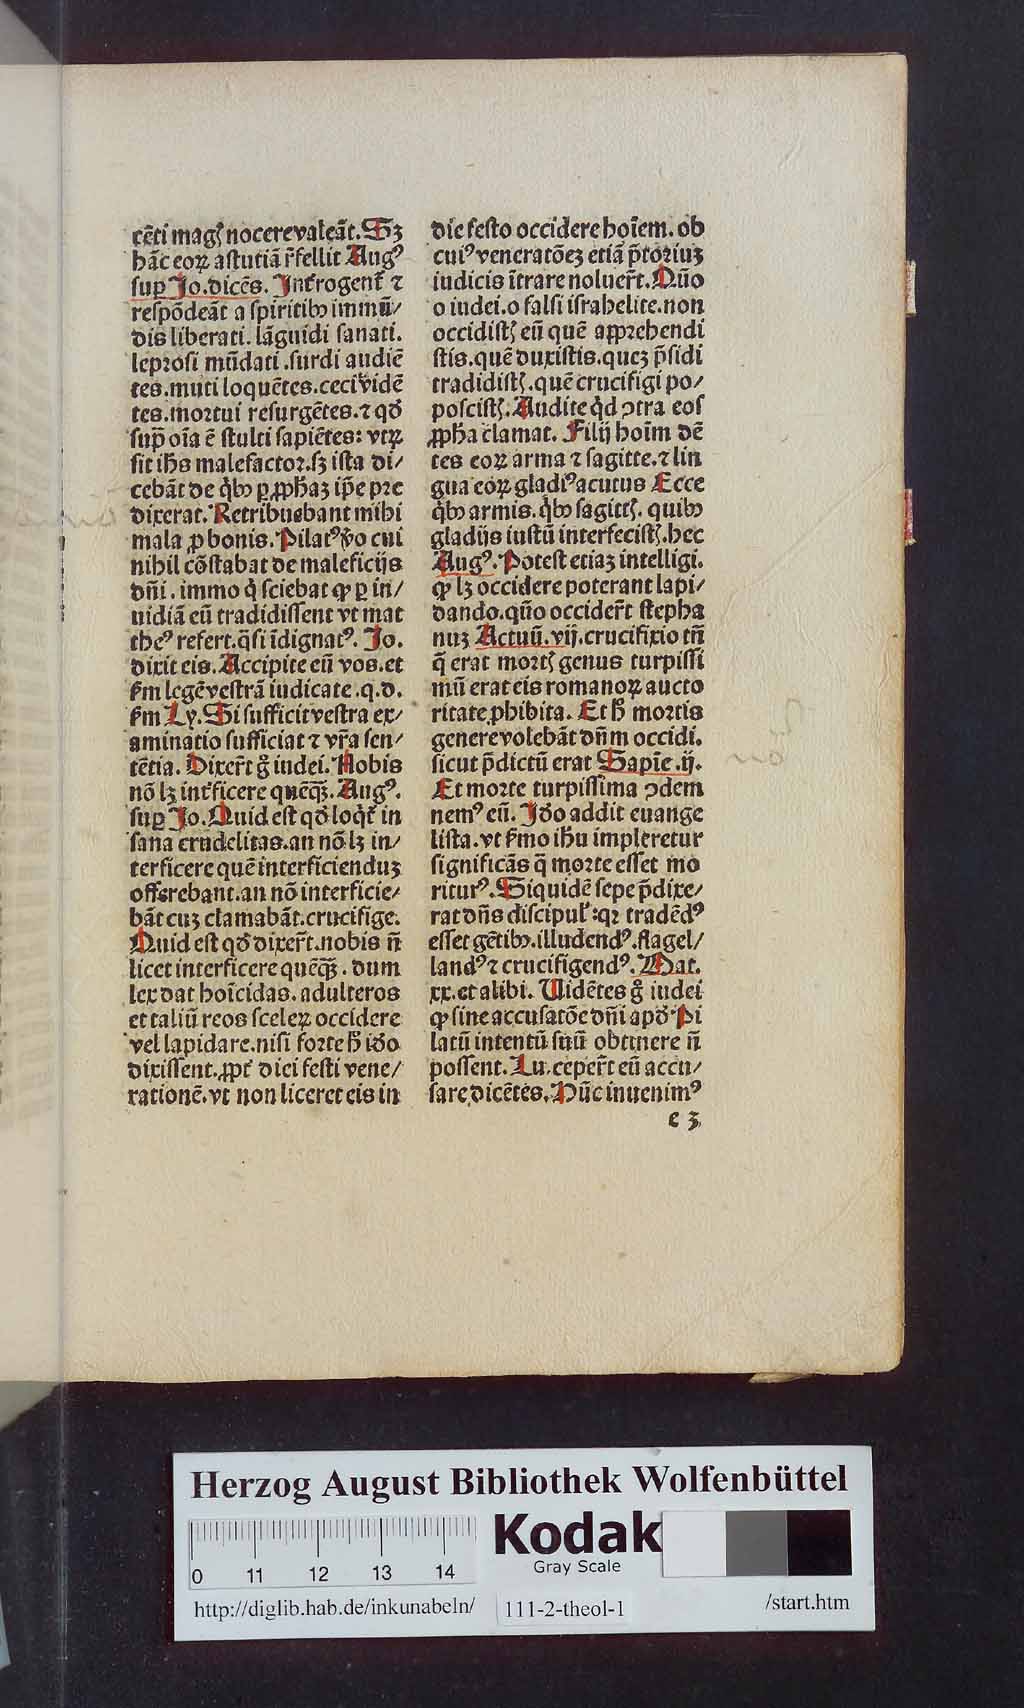 cēti magꝭ nocere valeāt. Sꝫ
hāc eoꝝ astutiā r̄fellit Augꝰ
suꝑ Jo. dicēs. Int̄rogent᷑ ⁊
respōdeāt a spiritibꝫ immū/
dis liberati. lāguidi sanati.
leprosi mūdati. surdi audiē
tes. muti loquētes. ceci vidē
tes. mortui resurgētes. ⁊ qđ
sup̄ oīa ē stulti sapiētes: vtꝝ
sit ihs malefactor. sꝫ ista di/
cebāt de q̇bꝫ ꝑ ꝓphaꝫ ip̄e pre
dixerat. Retribuebant mihi
mala ꝓ bonis. Pilatꝰ v̊o cui
nihil cōstabat de maleficijs
dn̄i. immo q̇ sciebat ꝙ ꝑ in/
uidiā eū tradidissent vt mat
theꝰ refert. q̄si īdignatꝰ. Jo.
dixit eis. Accipite eū vos. et
ẜm legē vestrā iudicate. q. d.
ẜm Ly. Si sufficit vestra ex/
aminatio sufficiat ⁊ vr̄a sen/
tētia. Dixer̄t g̊ iudei. Nobis
nō lꝫ int̄ficere quēꝗꝫ. Augꝰ.
suꝑ Jo. Quid est qđ loq̇t᷑ in
sana crudelitas. an nō lꝫ in/
terficere quē interficienduꝫ
offerebant. an nō interficie/
bāt cuꝫ clamabāt. crucifige.
Quid est qđ dixer̄t. nobis n̄
licet interficere quēꝗꝫ. dum
lex dat hoīcidas. adulteros
et taliū reos sceleꝝ occidere
vel lapidare. nisi forte h̄ iđo
dixissent. ꝓpt̄ diei festi vene/
rationē. vt non liceret eis in
die festo occidere hoīem. ob
cuiꝰ veneratōeꝫ etiā p̄toriuꝫ
iudicis ītrare noluer̄t. Nūo
o iudei. o falsi israhelite. non
occidistꝭ eū quē apprehendi
stis. quē duxistis. queꝫ p̄sidi
tradidistꝭ. quē crucifigi po/
poscistꝭ. Audite q̇d ɔtra eos
ꝓpha clamat. Filij hoīm dē
tes eoꝝ arma ⁊ sagitte. ⁊ lin
gua eoꝝ gladiꝰ acutus Ecce
q̇bꝫ armis. q̇bꝫ sagittꝭ. quibꝫ
gladijs iustū interfecistꝭ. hec
Augꝰ. Potest etiaꝫ intelligi.
ꝙ lꝫ occidere poterant lapi/
dando. qūo occider̄t stepha
nuꝫ Actuū. vij. crucifixio tn̄
q̄ erat mortꝭ genus turpissi
mū erat eis romanoꝝ aucto
ritate ꝓhibita. Et h̄ mortis
genere volebāt dn̄m occidi.
sicut p̄dictū erat Sapīe. ij.
Et morte turpissima ɔdem
nemꝰ eū. Iđo addit euange
lista. vt ẜmo ihu impleretur
significās q̄ morte esset mo
riturꝰ. Siquidē sepe p̄dixe/
rat dn̄s discipul̓: qꝛ tradēdꝰ
esset gētibꝫ. illudendꝰ. flagel/
landꝰ ⁊ crucifigendꝰ. Mat.
xx. et alibi. Uidētes g̊ iudei
ꝙ sine accusatōe dn̄i apđ Pi
latū intentū suū obtinere n̄
possent. Lu. ceper̄t eū accu/
sare dicētes. Hūc inuenimꝰ
e 3
Herzog August Bibliothek Wolfenbüttel
0 11 12 13 14
Kodak
Gray Scale
http://diglib.hab.de/inkunabeln/ 111-2-theol-1 /start.htm